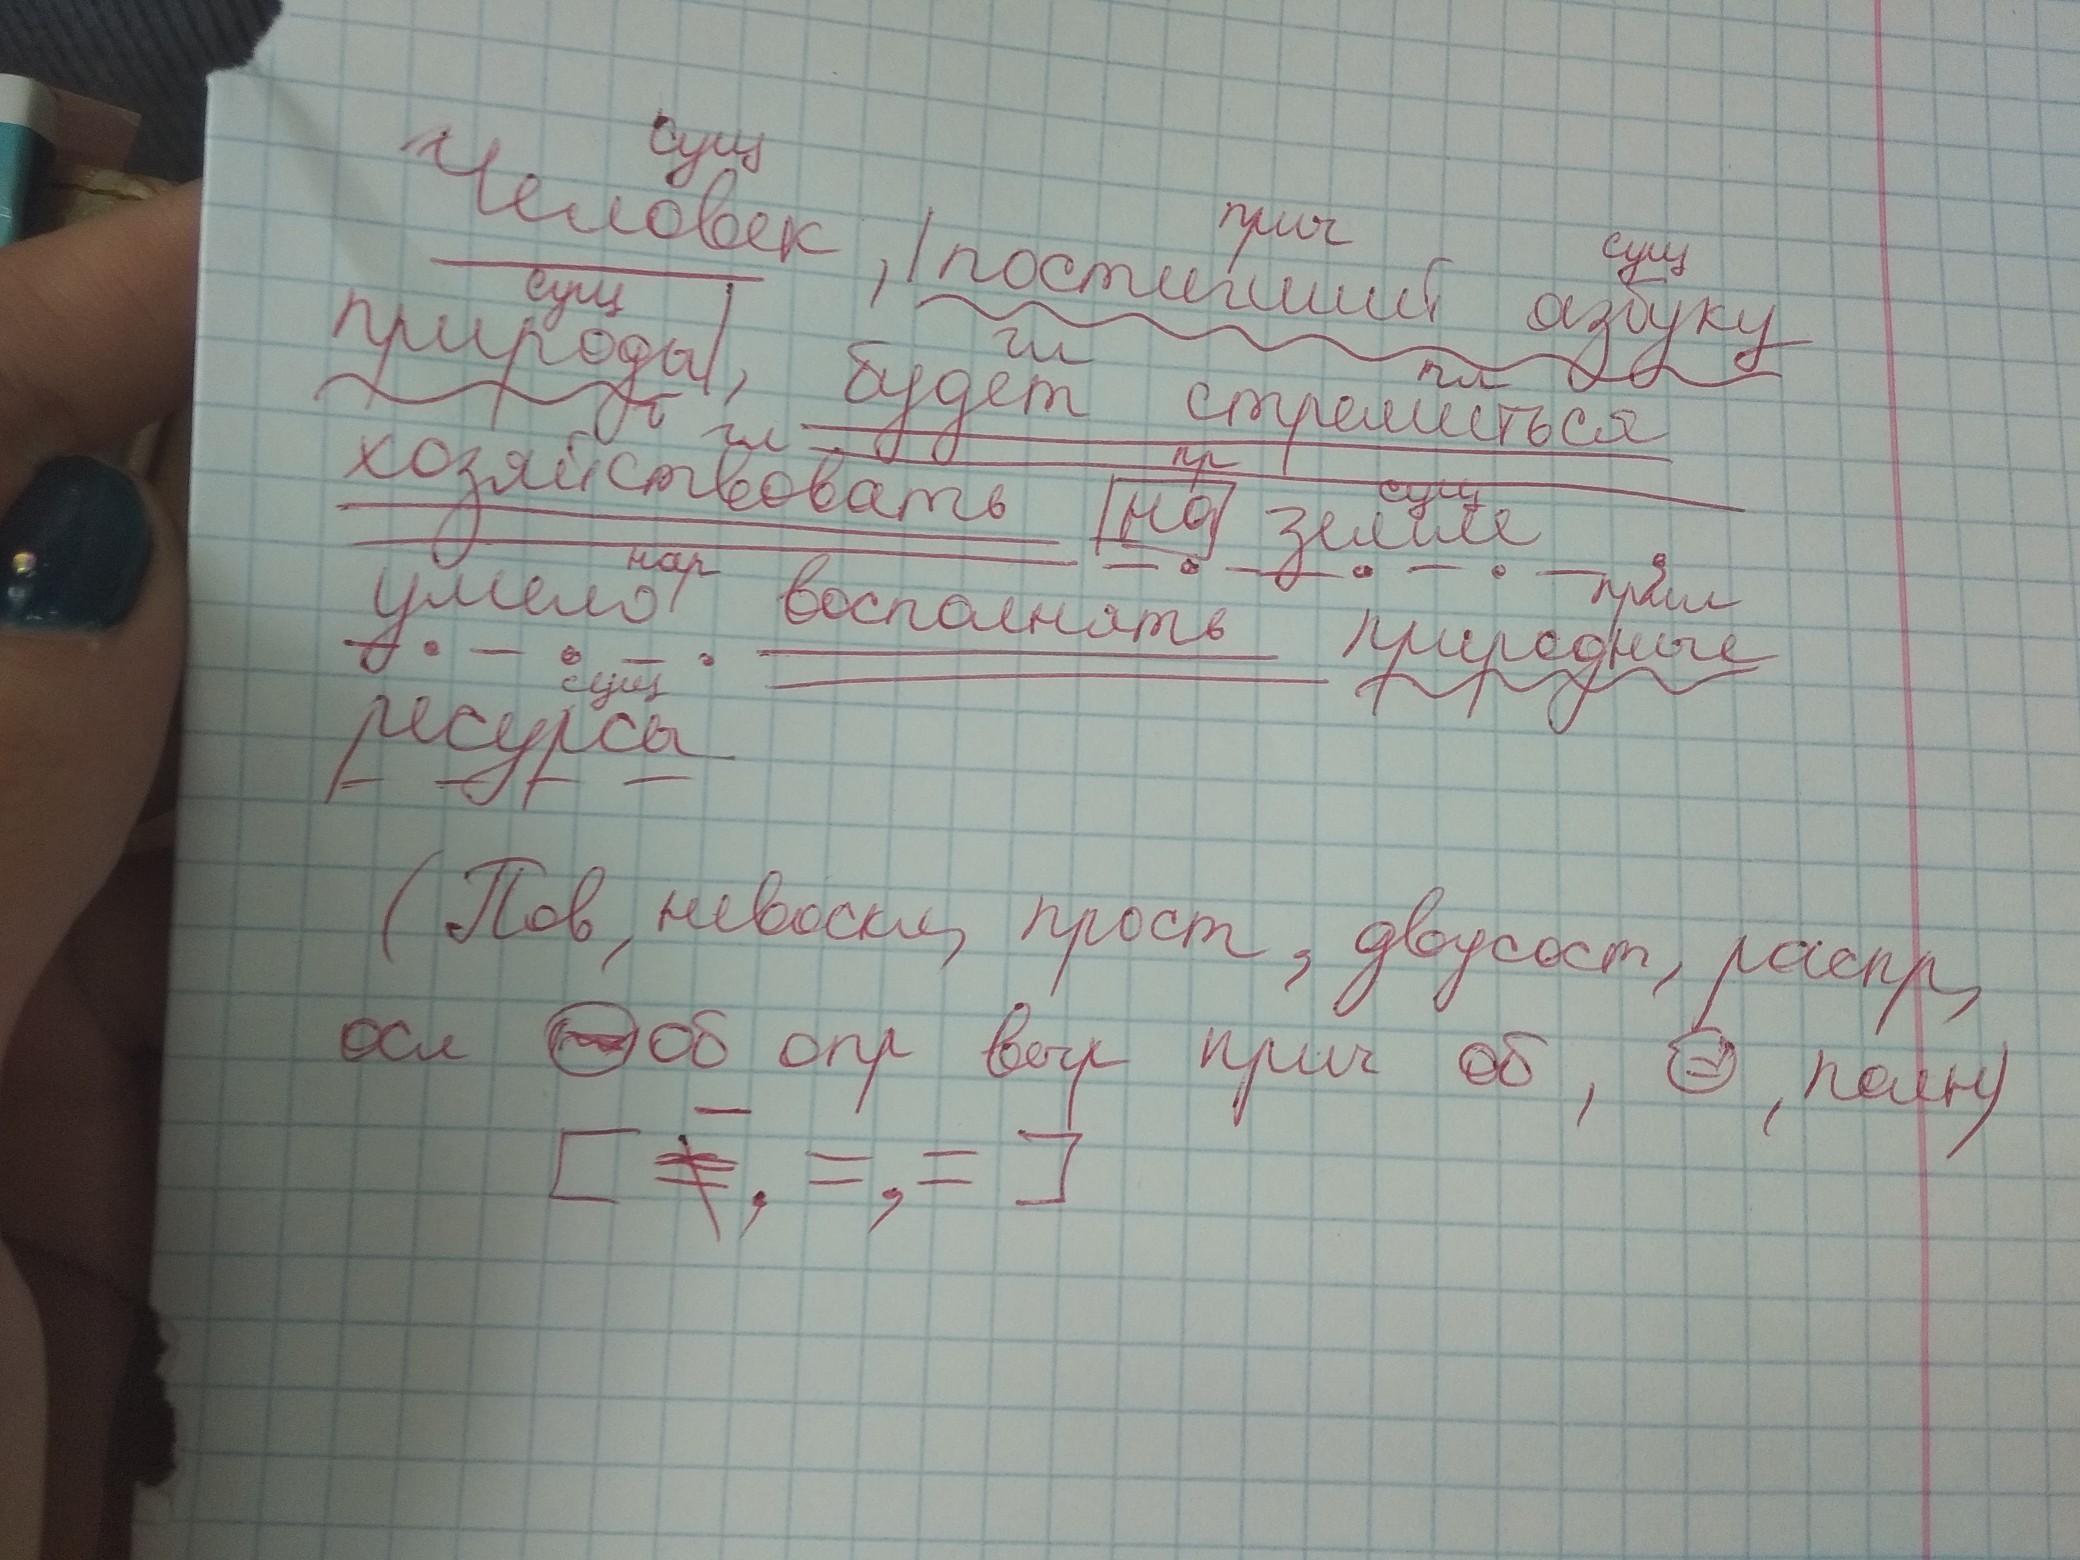 сущ
Человек, |постигший азбуку
прич сущ
сущ
природы|, будет стремиться
гл гл
гл
хозяйствовать на земле
пр сущ
нар прил
умело восполнять природные
сущ
ресурсы
(Пов, невоскл, прост, двусост, распр,
осл об опр выр прич об, =, полн)
[ –, =, = ]